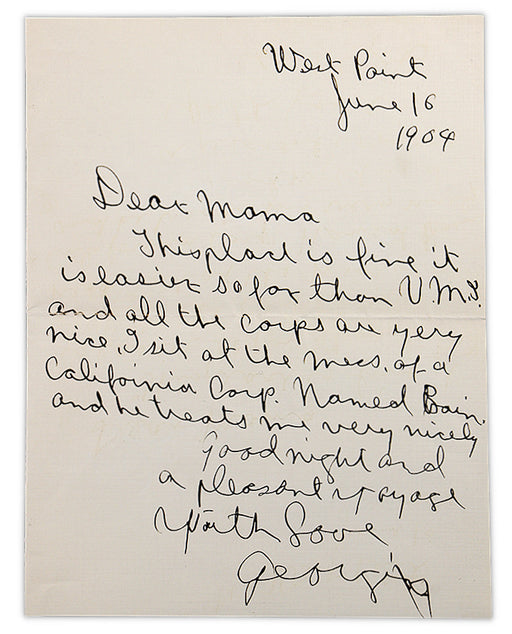 West Point
June 16
1904
Dear Mama
This place is fine it
is easier so far than V.M.I.
and all the corps are very
nice. I sit at the mess. of a
California Corp. Named Bain.
and he treats me very nicely
Good night and
a pleasant voyage
With Love
Georgie